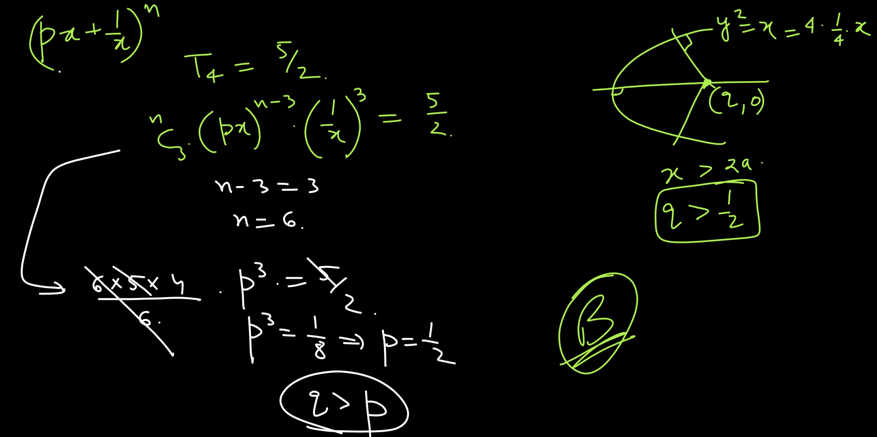 (px + 1/x)^n
T₄ = 5/2.
ⁿC₃ · (px)^(n-3) · (1/x)³ = 5/2.
n-3 = 3
n = 6.
(6×5×4)/6 . p³ · = 5/2.
p³ = 1/8 ⇒ p = 1/2
q > p
y² = x = 4 · 1/4 · x
(q, 0)
x > 2a.
q > 1/2
B